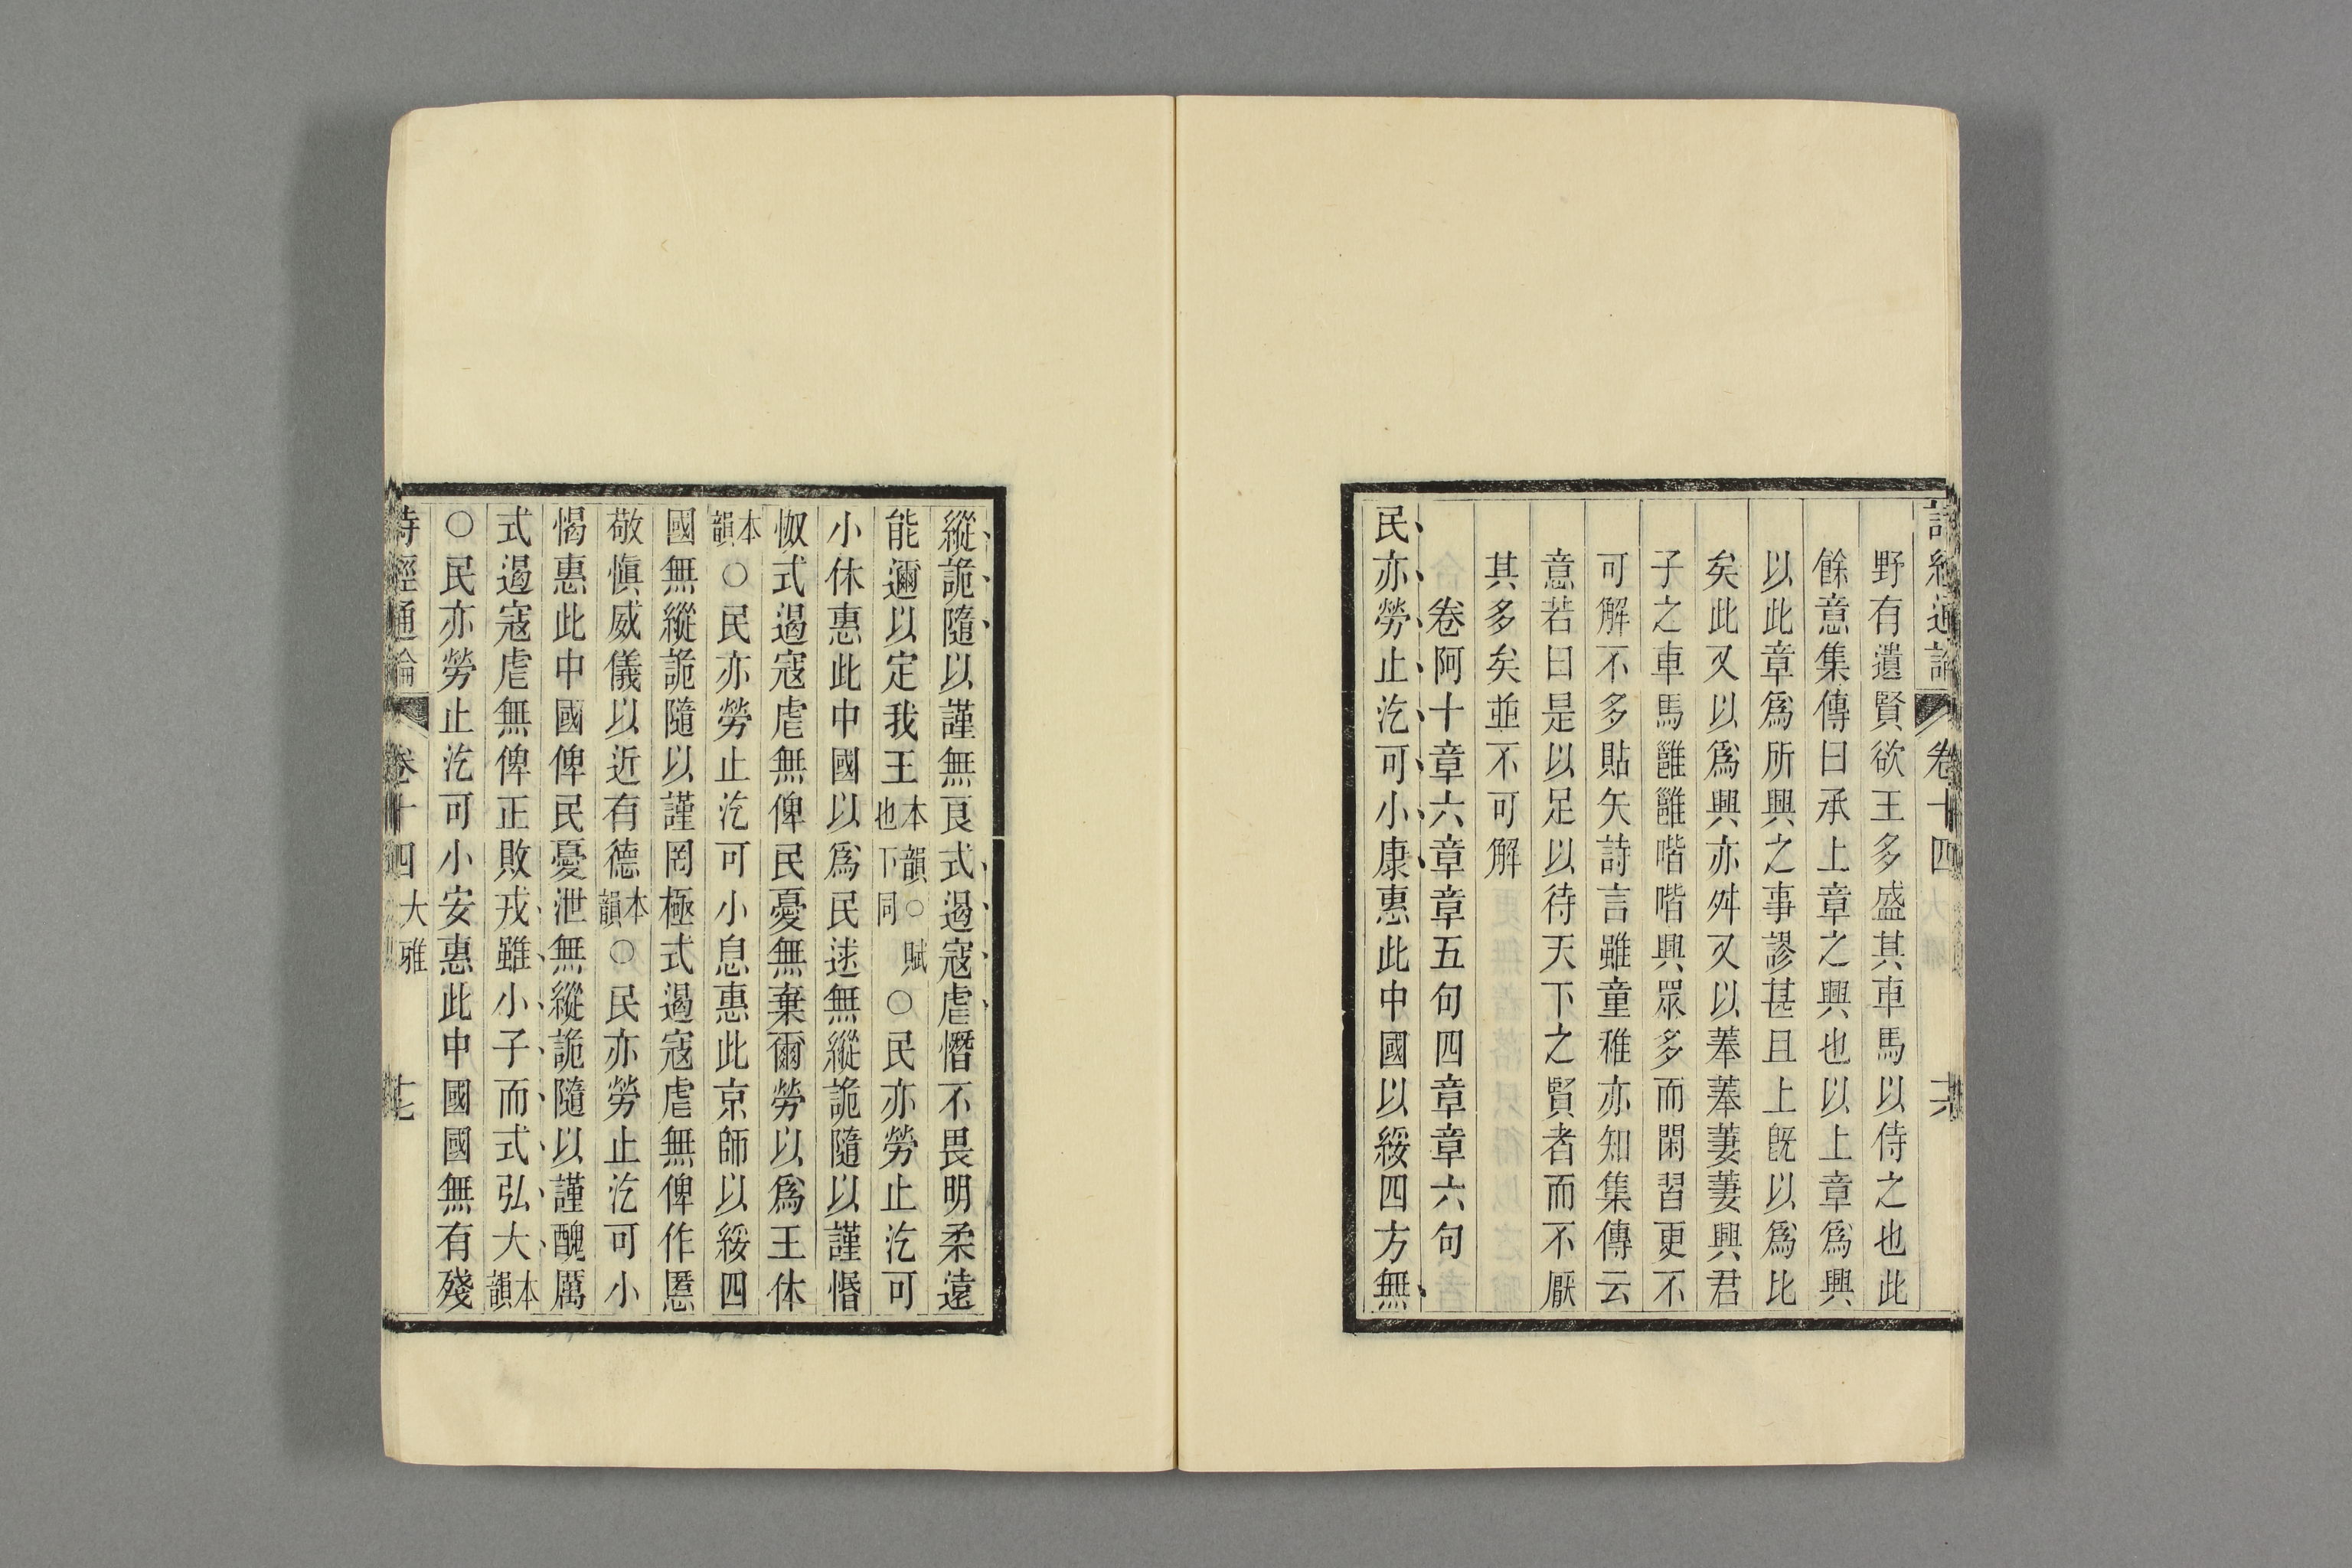 詩經通論 卷十四 大雅 十六
野有遺賢欲王多盛其車馬以侍之也此
餘意集傳曰承上章之興也以上章爲興
以此章爲所興之事謬甚且上旣以爲比
矣此又以爲興亦舛又以菶菶萋萋興君
子之車馬雝雝喈喈興眾多而閑習更不
可解不多貼矢詩言雖童稚亦知集傳云
意若曰是以足以待天下之賢者而不厭
其多矣並不可解
卷阿十章六章章五句四章章六句
民亦勞止汔可小康惠此中國以綏四方無
縱詭隨以謹無良式遏寇虐憯不畏明柔遠
能邇以定我王本韻○賦也下同○民亦勞止汔可
小休惠此中國以爲民逑無縱詭隨以謹惽
怓式遏寇虐無俾民憂無棄爾勞以爲王休
本韻○民亦勞止汔可小息惠此京師以綏四
國無縱詭隨以謹罔極式遏寇虐無俾作慝
敬愼威儀以近有德本韻○民亦勞止汔可小
愒惠此中國俾民憂泄無縱詭隨以謹醜厲
式遏寇虐無俾正敗戎雖小子而式弘大本韻
○民亦勞止汔可小安惠此中國國無有殘
詩經通論 卷十四 大雅 十七